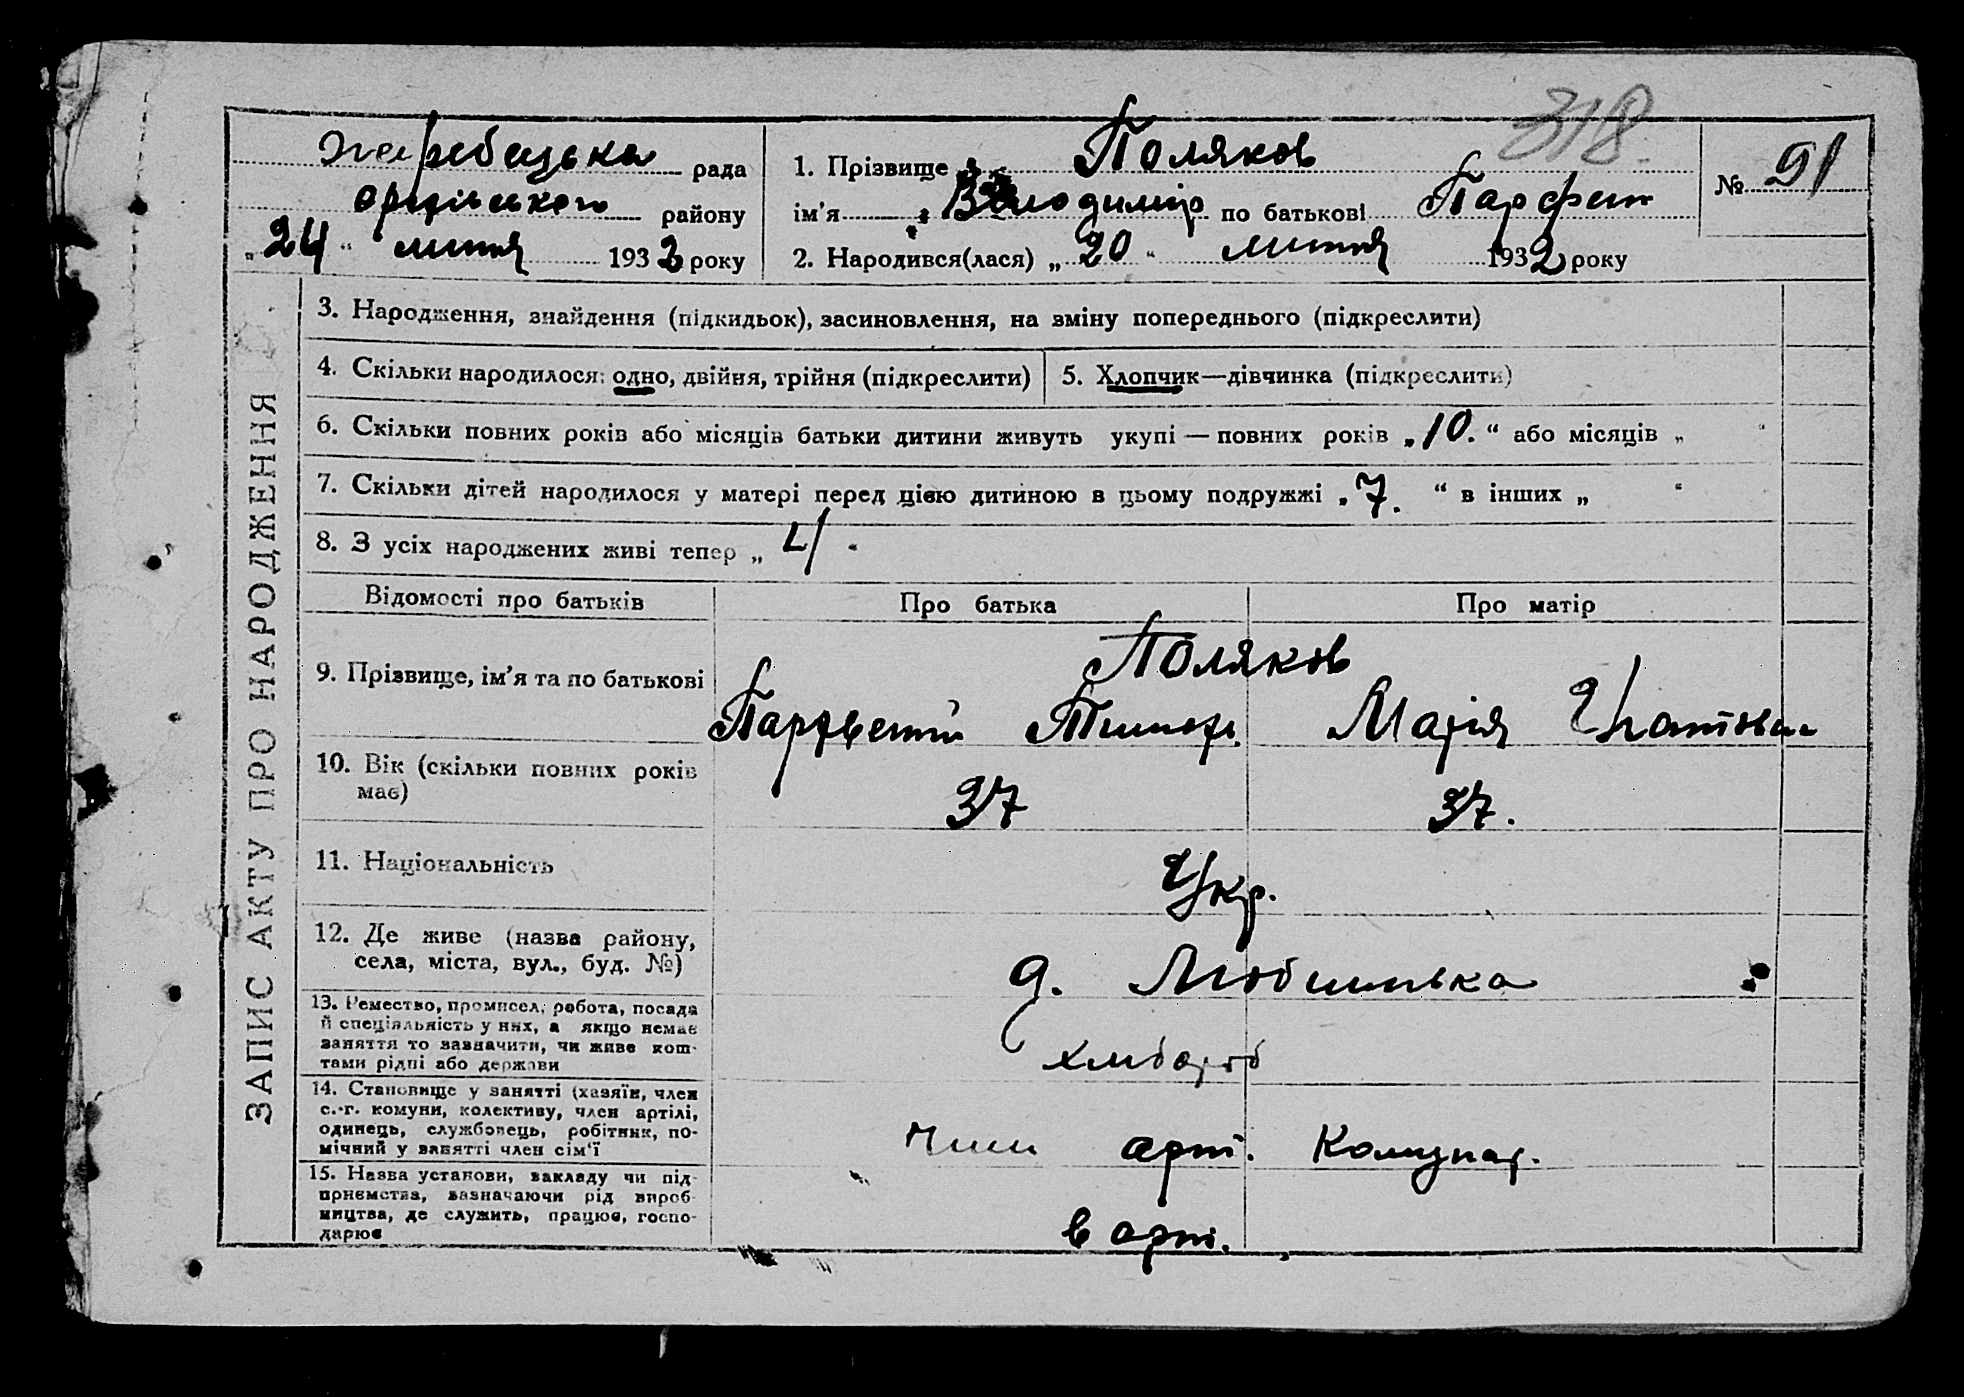 318.
Жеребецька рада
оріхівського району
„24“ лютня 1932 року
1. Прізвище Поляков
ім'я Володимір по батькові Парфен
2. Народився(лася) „20“ лютня 1932 року
№ 91
ЗАПИС АКТУ ПРО НАРОДЖЕННЯ
3. Народження, знайдення (підкидьок), засиновлення, на зміну попереднього (підкреслити)
4. Скільки народилося: одно, двійня, трійня (підкреслити)
5. Хлопчик—дівчинка (підкреслити)
6. Скільки повних років або місяців батьки дитини живуть укупі — повних років „10.“ або місяців „ “
7. Скільки дітей народилося у матері перед цією дитиною в цьому подружжі „7.“ в інших „ “
8. З усіх народжених живі тепер „4.
Відомості про батьків Про батька Про матір
9. Прізвище, ім'я та по батькові
Поляков
Парфентій Тимоф. Марія
10. Вік (скільки повних років
має)
37 37.
11. Національність
Укр.
12. Де живе (назва району,
села, міста, вул., буд. №)
Любимівка
13. Ремество, промисел, робота, посада
й спеціяльність у них, а якщо немає
заняття то зазначити, чи живе кош-
тами рідні або держави
хлібороб
14. Становище у занятті (хазяїн, член
с.-г. комуни, колективу, член артілі,
одинець, службовець, робітник, по-
мічний у занятті член сім'ї
член арт. Комунар.
15. Назва установи, закладу чи під-
приємства, зазначаючи рід вироб-
ництва, де служить, працює, госпо-
дарює
в арт.